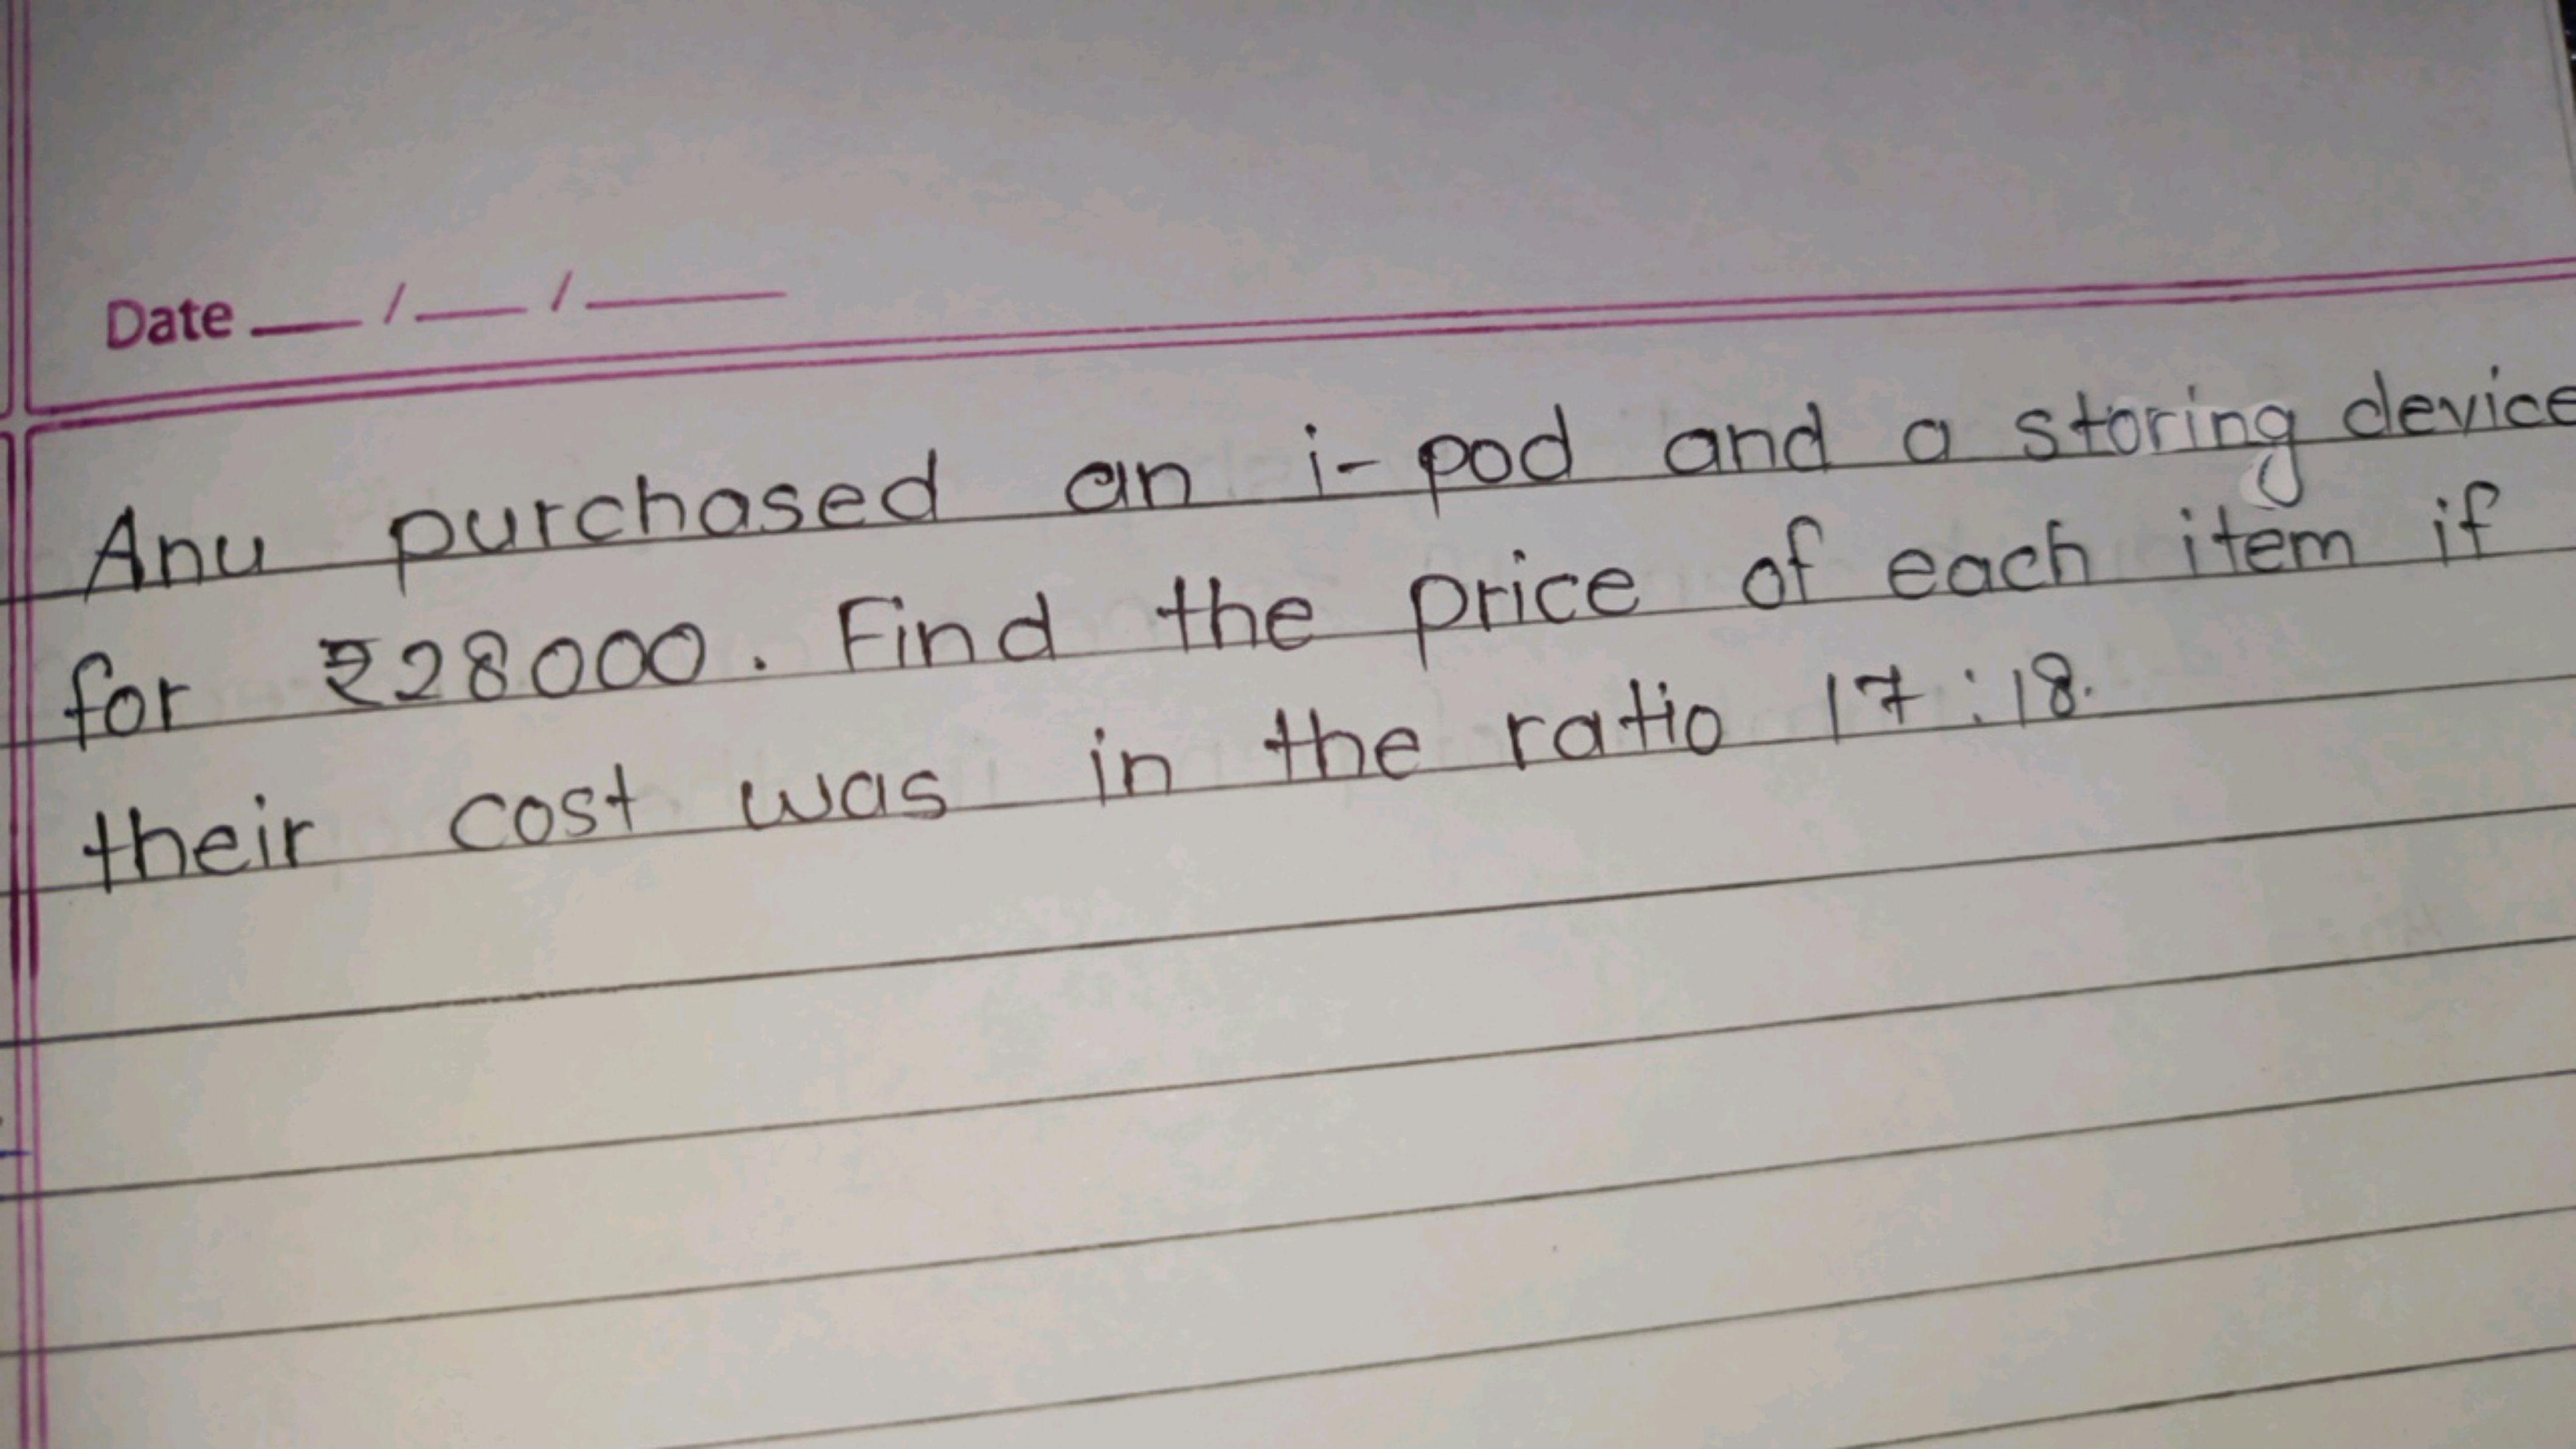 Date ___ / ___ / _____
Anu purchased an i-pod and a storing device
for ₹28000. Find the price of each item if
their cost was in the ratio 17:18.